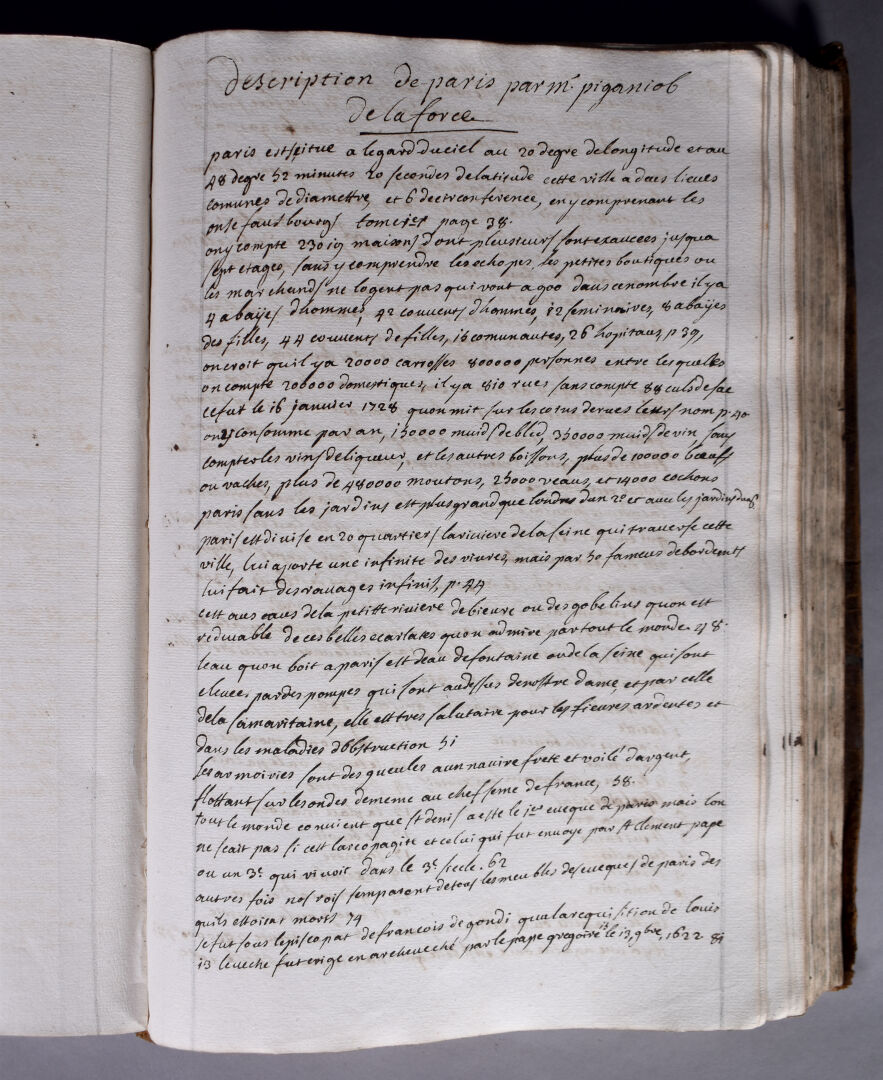 description de paris par mr. piganiol
de la force
paris est situe a legard du ciel au 20 degre de longitude et au
48 degre 52 minutes 20 secondes de latitude cette ville a deus lieues
comunes de diamettre, et 6 de circonference, en y comprenant les
onse fausbourgs tome 1er page 38.
on y compte 23019 maisons dont pleusieurs sont exaucees jusqua
sept etages, sans y comprendre les echopes, les petites boutiques ou
les marchands ne logent pas qui vont a 900 dans ce nombre il y a
4 abaÿes dhommes, 42 couvents dhommes, 12 seminaires, 8 abaÿes
des filles, 44 couvents de filles, 15 comunautes, 26 hopitaus, p 39,
on croit quil y a 20000 carrosses 800000 personnes entre lesquelles
on compte 200000 domestiques, il y a 810 rues sans compte 88 culs de sac
ce fut le 16 janvier 1728 quon mit sur les coins de rues leurs nom p. 40
on y consomme par an, 150000 muids de bled, 350000 muids de vin sans
compter les vins de liqueur, et les autres boissons, plus de 100000 bœufs
ou vaches, plus de 480000 moutons, 25000 veaus, et 14000 cochons
paris sans les jardins est plus grand que londres dun 20e et avec les jardins dun 6.
paris est divise en 20 quartiers la riviere de la seine qui traverse cette
ville, lui aporte une infinite des vivres, mais par 50 fameus debordements
lui fait des ravages infinis, p. 44
cest aus eaus de la petitte riviere de bieure ou des gobelins quon est
redevable de ces belles ecarlates quon admire par tout le monde. 48.
leau quon boit a paris est deau de fontaine ou de la seine qui sont
elevees par des pompes qui sont au dessus de nostre dame, et par celle
de la samaritaine, elle est tres salutaire pour les fievres ardentes et
dans les maladies dobstruction 51
les armoiries sont des gueules a un navire frete et voilé dargent,
flottant sur les ondes de meme au chef seme de france, 58.
tout le monde convient que st denis a este le 1er eveque de paris mais lon
ne scait pas si cest lareopagite et celui qui fut envoye par st clement pape
ou un 3e qui vivoit dans le 3e siecle. 62
autres fois nos rois semparoient de tous les meubles des eveques de paris des
quils estoient morts 74
se fut sous lepiscopat de francois de gondi qua la requisition de louis
13 leveche fut erige en archeveché par le pape gregoire 15 le 13, 9bre, 1622 81